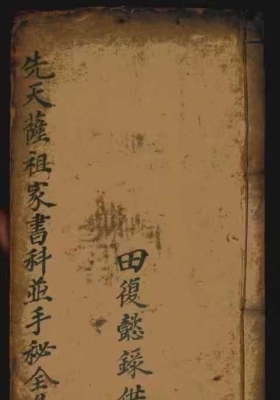 先天薩祖家書科並手秘全
田復懿錄